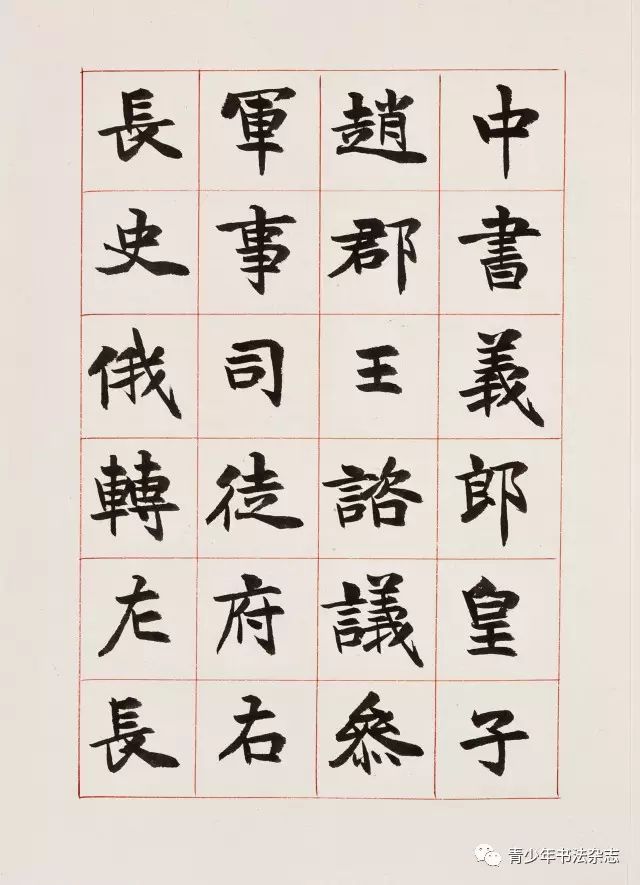 中書義郎皇子
趙郡王諮議叅
軍事司徒府右
長史俄轉左長
青少年书法杂志